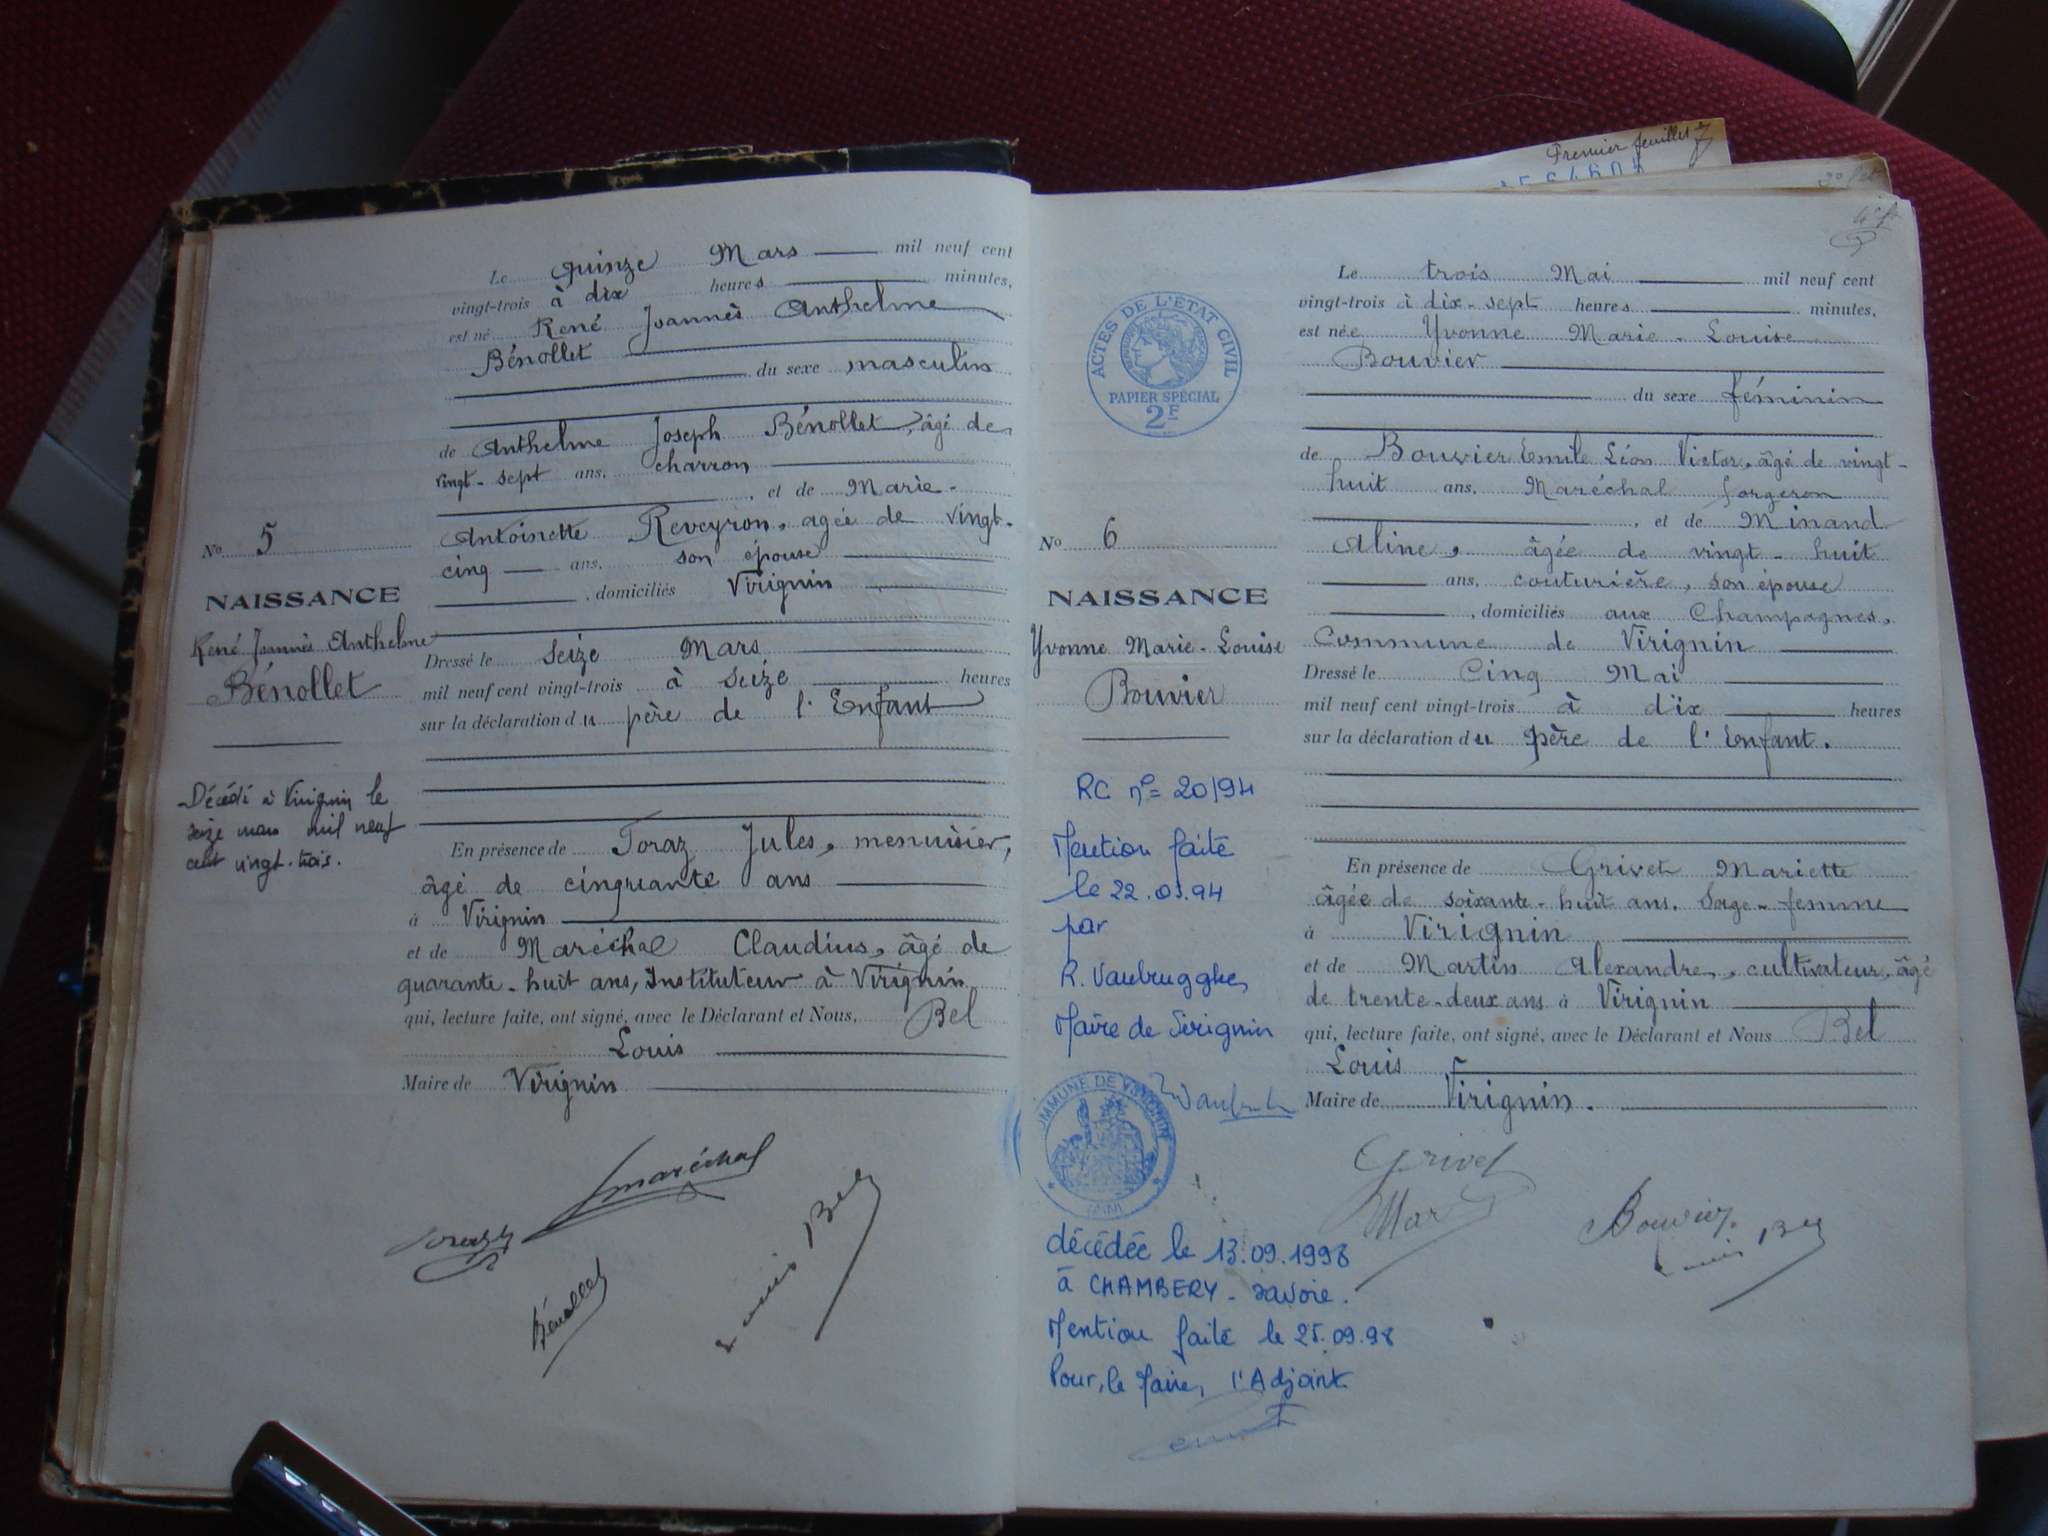 Le quinze Mars mil neuf cent
vingt-trois à dix heures minutes,
est né René Joannès Anthelme
Bénollet
du sexe masculin
de Anthelme Joseph Bénollet, âgé de
vingt-sept ans, charron
, et de Marie-
Antoinette Reveyron, agée de vingt-
cinq ans, son épouse
, domiciliés Virignin
Dressé le seize Mars
mil neuf cent vingt-trois à seize heures
sur la déclaration du père de l'Enfant
En présence de Toraz Jules, menuisier,
âgé de cinquante ans
à Virignin
et de Maréchal Claudius, âgé de
quarante-huit ans, Instituteur à Virignin
qui, lecture faite, ont signé, avec le Déclarant et Nous, Bel
Louis
Maire de Virignin
No 5
NAISSANCE
René Joannès Anthelme
Bénollet
Décédé à Virignin le
seize mars mil neuf
cent vingt-trois.
maréchal
Bénollet
Louis Bel
Premier feuillet
ACTES DE L'ÉTAT CIVIL
PAPIER SPÉCIAL
2F
Le trois Mai mil neuf cent
vingt-trois à dix-sept heures minutes,
est née Yvonne Marie-Louise
Bouvier
du sexe féminin
de Bouvier Emile Léon Victor, âgé de vingt-
huit ans, Maréchal forgeron
, et de Minand
Aline, âgée de vingt-huit
ans, couturière, son épouse
, domiciliés aux Champagnes,
Commune de Virignin
Dressé le Cinq Mai
mil neuf cent vingt-trois à dix heures
sur la déclaration du père de l'Enfant.
En présence de Grivet Mariette
âgée de soixante-huit ans. Sage-femme
à Virignin
et de Martin Alexandre, cultivateur, âgé
de trente-deux ans à Virignin
qui, lecture faite, ont signé, avec le Déclarant et Nous Bel
Louis
Maire de Virignin.
No 6
NAISSANCE
Yvonne Marie-Louise
Bouvier
RC n°= 20/94
Mention faite
le 22.03.94
par
R. Vanbrugghe,
Maire de Virignin
COMMUNE DE VIRIGNIN
(AIN)
décédée le 13.09.1998
à CHAMBERY - Savoie.
Mention faite le 25.09.98
Pour, le Maire, l'Adjoint
Grivet
Mar
Bouvier
Louis Bel